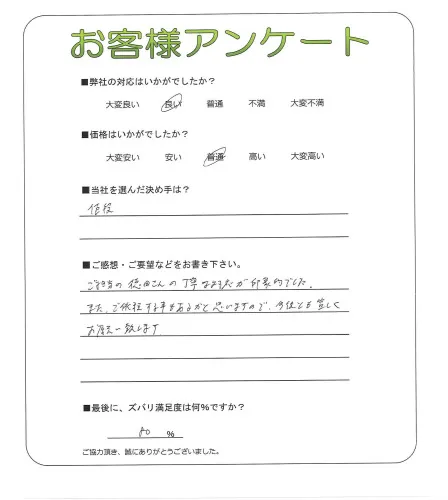 お客様アンケート
■弊社の対応はいかがでしたか？
大変良い 良い 普通 不満 大変不満
■価格はいかがでしたか？
大変安い 安い 普通 高い 大変高い
■当社を選んだ決め手は？
値段
■ご感想・ご要望などをお書き下さい。
ご担当の徳田さんの丁寧な対応が印象的でした。
また、ご依頼する事もあるかと思いますので、今後とも宜しく
お願い致します
■最後に、ズバリ満足度は何%ですか？
80 %
ご協力頂き、誠にありがとうございました。